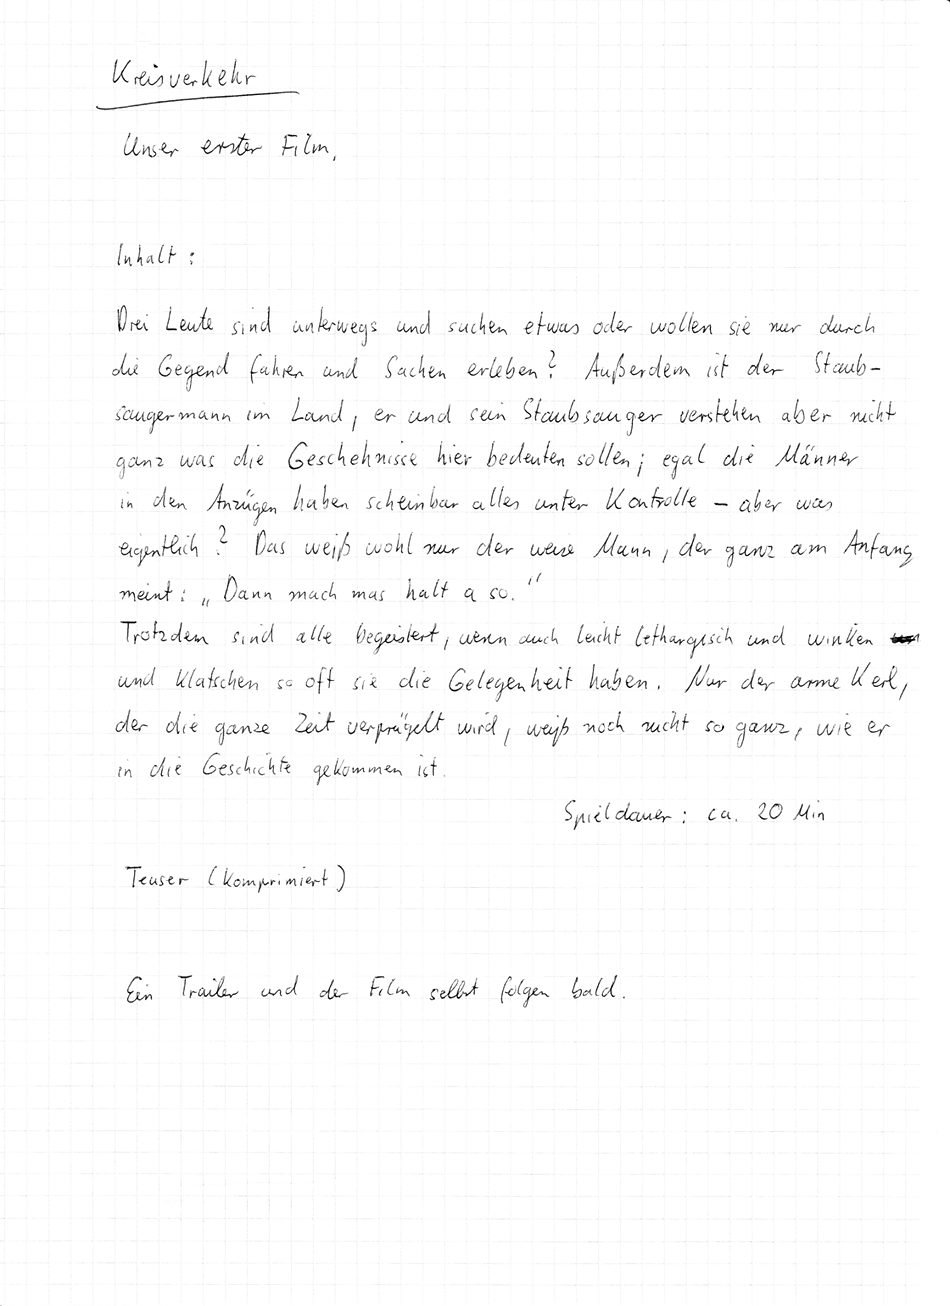 Kreisverkehr
Unser erster Film.
Inhalt:
Drei Leute sind unterwegs und suchen etwas oder wollen sie nur durch
die Gegend fahren und Sachen erleben? Außerdem ist der Staub-
saugermann im Land, er und sein Staubsauger verstehen aber nicht
ganz was die Geschehnisse hier bedeuten sollen; egal die Männer
in den Anzügen haben scheinbar alles unter Kontrolle – aber was
eigentlich? Das weiß wohl nur der weise Mann, der ganz am Anfang
meint: „Dann mach mas halt a so."
Trotzdem sind alle begeistert, wenn auch leicht lethargisch und winken
und klatschen so oft sie die Gelegenheit haben. Nur der arme Kerl,
der die ganze Zeit verprügelt wird, weiß noch nicht so ganz, wie er
in die Geschichte gekommen ist.
Spieldauer: ca. 20 Min
Teaser (komprimiert)
Ein Trailer und der Film selbst folgen bald.